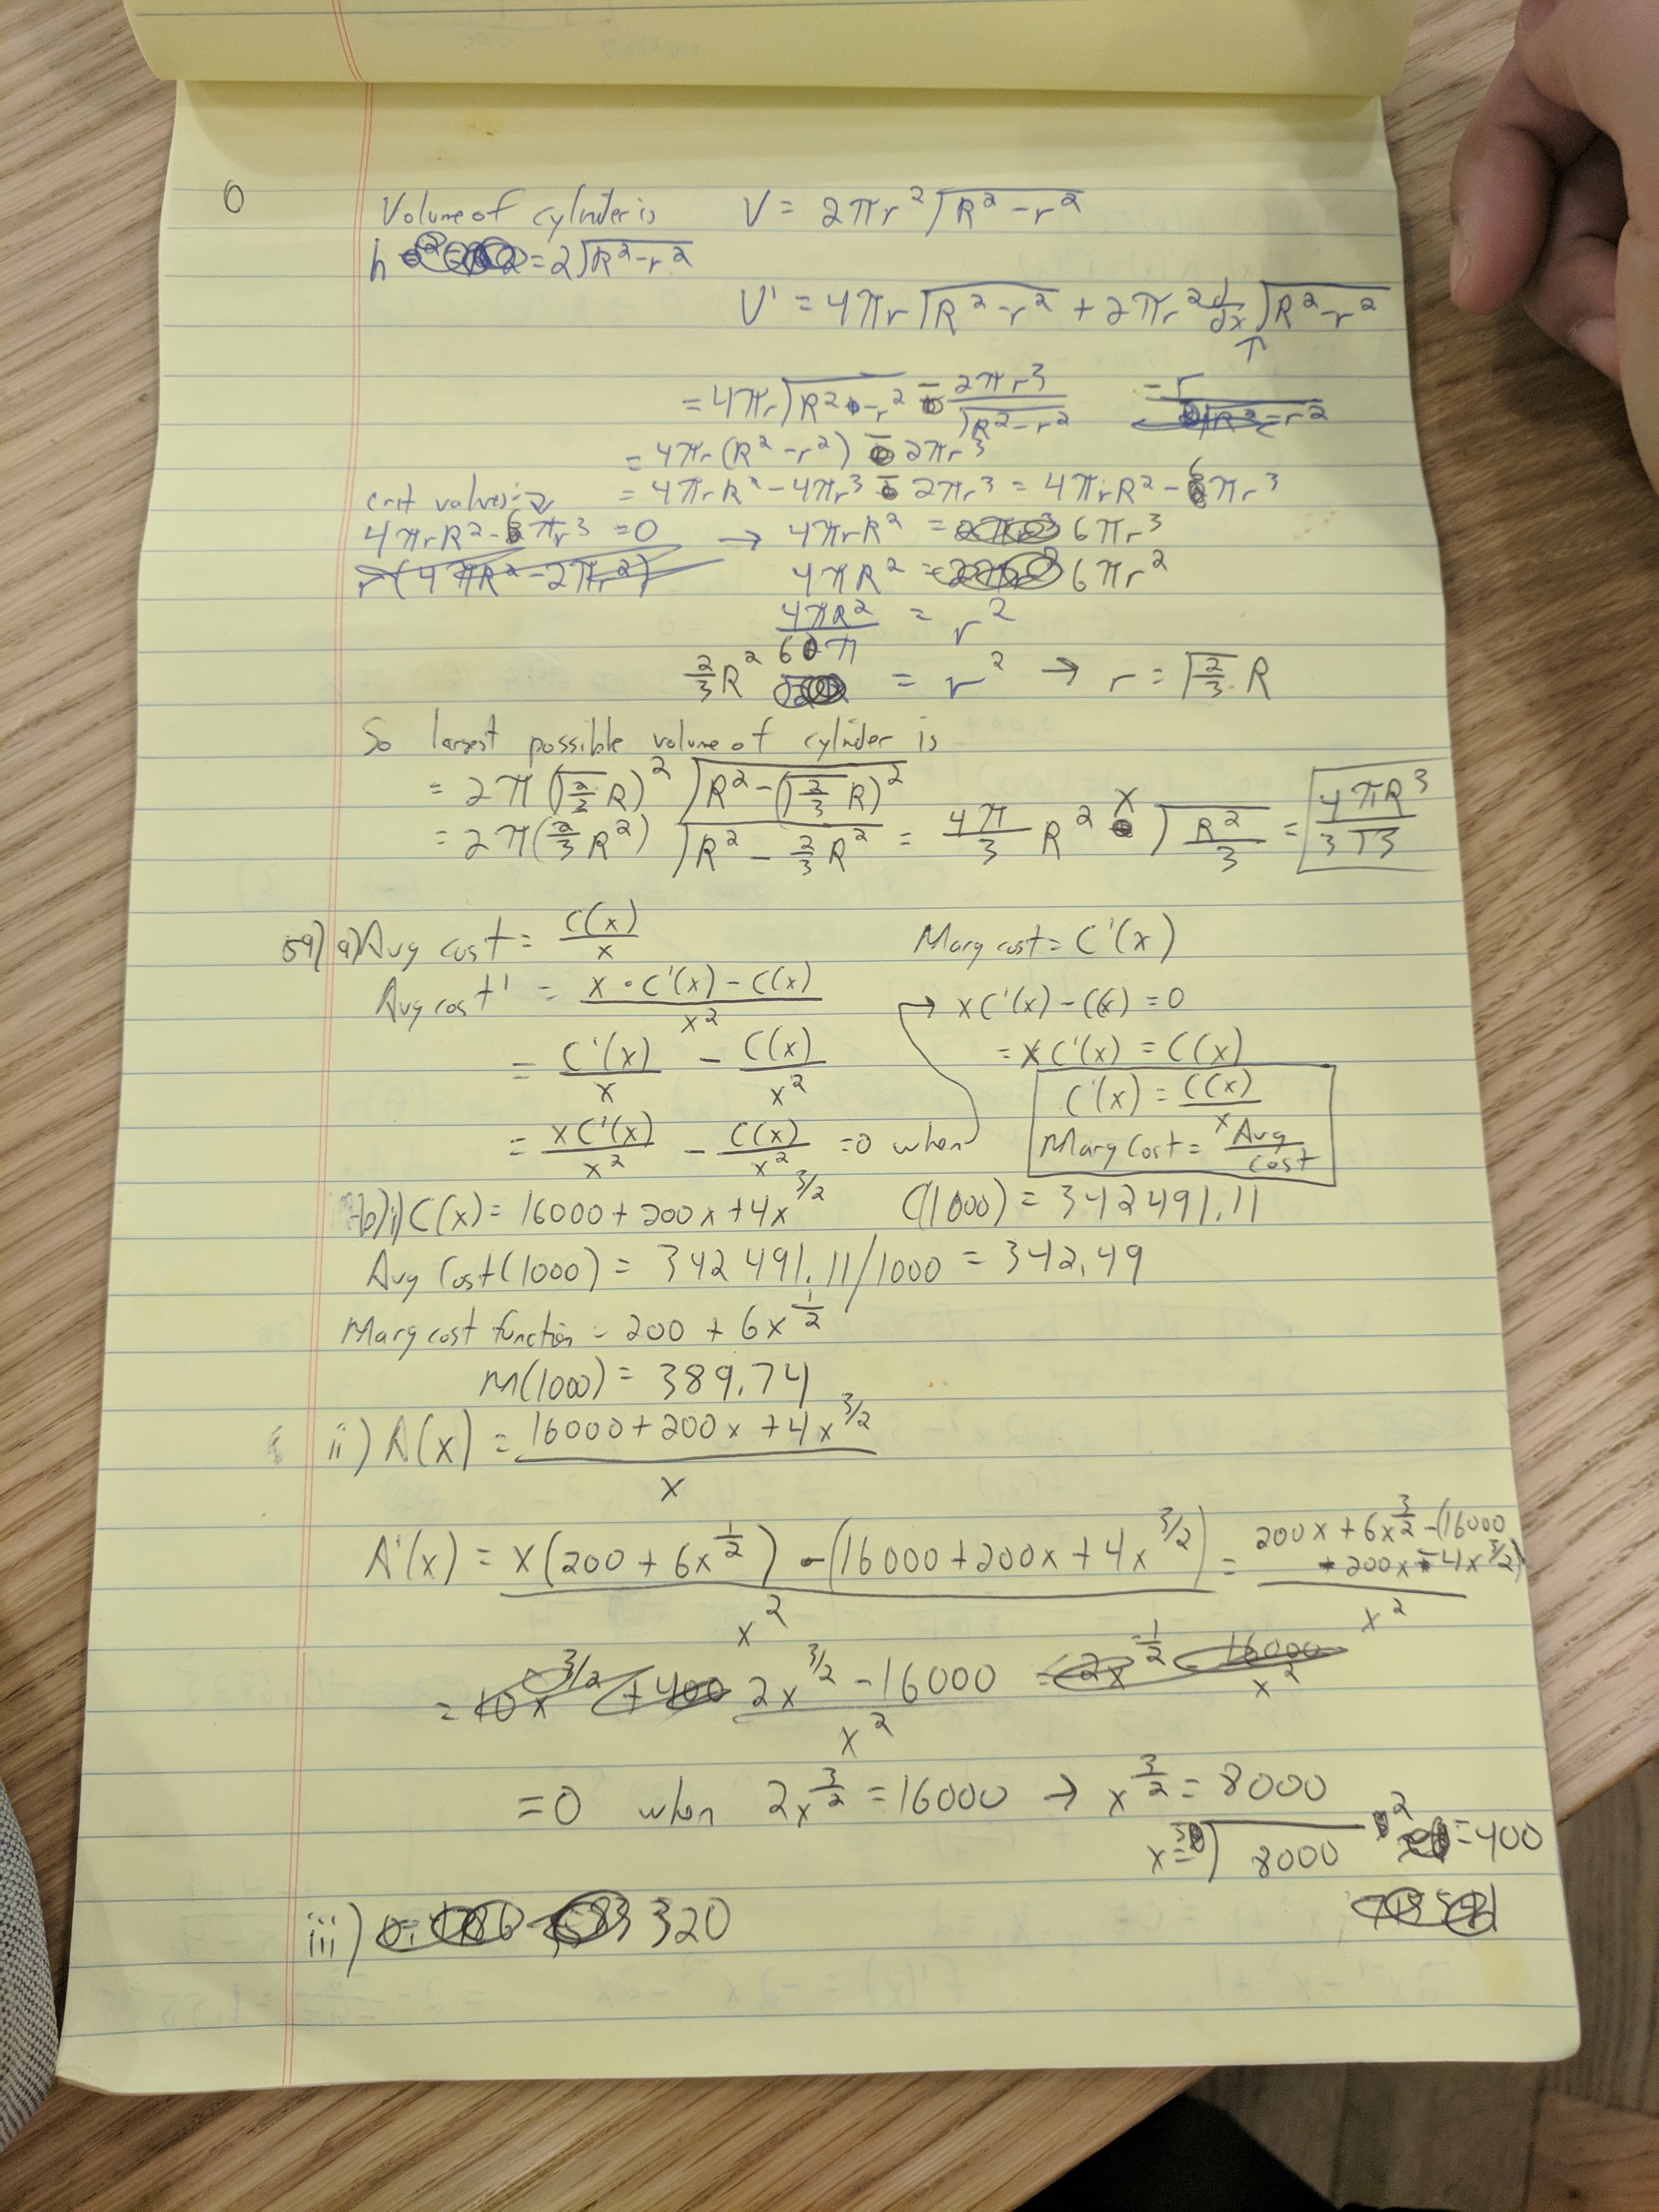 0
Volume of cylinder is V = 2πr²√(R²-r²)
h = 2√(R²-r²)
V' = 4πr√(R²-r²) + 2πr² d/dx √(R²-r²)
↑
= 4πr√(R²-r²) - 2πr³/√(R²-r²) -r/√(R²-r²)
= 4πr(R²-r²) - 2πr³
crit values: = 4πrR² - 4πr³ - 2πr³ = 4πrR² - 6πr³
4πrR² - 6πr³ = 0 → 4πrR² = 6πr³
r(4πR² - 2πr²) 4πR² = 6πr²
4πR²/6π = r²
2/3 R² = r² → r = √(2/3) R
So largest possible volume of cylinder is
= 2π(√(2/3) R)² √(R² - (√(2/3) R)²)
= 2π(2/3 R²) √(R² - 2/3 R²) = 4π/3 R² x √(R²/3) = 4πR³/3√3
59) a) Avg cost = C(x)/x Marg cost = C'(x)
Avg cost' = (x · C'(x) - C(x))/x² → xC'(x) - C(x) = 0
= C'(x)/x - C(x)/x² = xC'(x) = C(x)
C'(x) = C(x)/x
= xC'(x)/x² - C(x)/x² = 0 when Marg Cost = Avg cost
b) i) C(x) = 16000 + 200x + 4x^(3/2) C(1000) = 342491.11
Avg Cost(1000) = 342491.11/1000 = 342.49
Marg cost function = 200 + 6x^(1/2)
M(1000) = 389.74
ii) A(x) = (16000 + 200x + 4x^(3/2))/x
A'(x) = (x(200 + 6x^(1/2)) - (16000 + 200x + 4x^(3/2)))/x² = (200x + 6x^(3/2) - (16000 - 200x - 4x^(3/2)))/x²
= 10x^(3/2) + 400 (2x^(3/2) - 16000)/x² = 2x^(-1/2) - 16000/x²
= 0 when 2x^(3/2) = 16000 → x^(3/2) = 8000
x = ³√8000 ² = 400
iii) 320